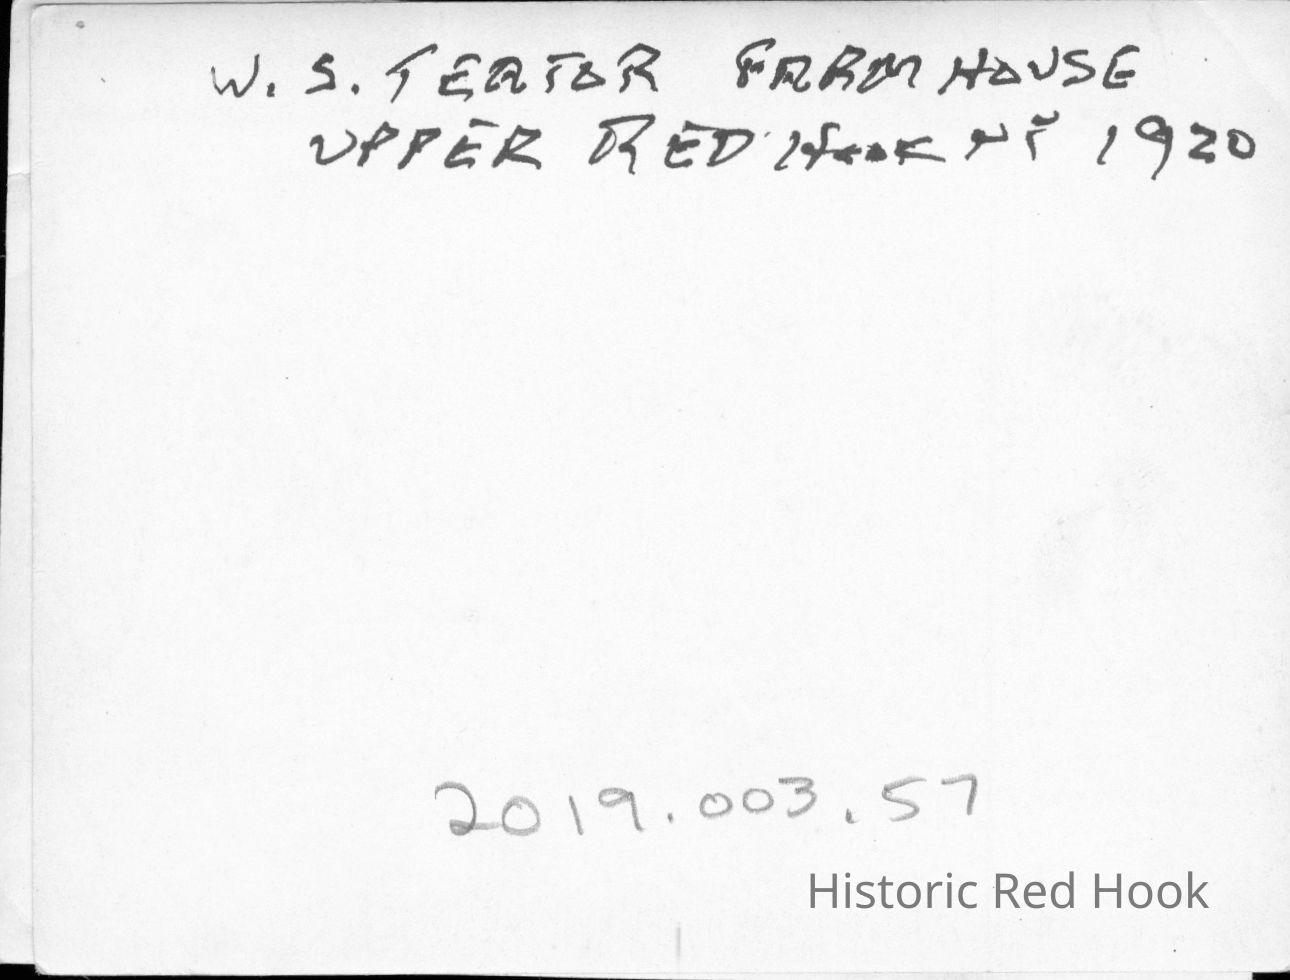 W. S. TEATOR FARM HOUSE
UPPER RED HOOK NY 1920
2019.003.57
Historic Red Hook